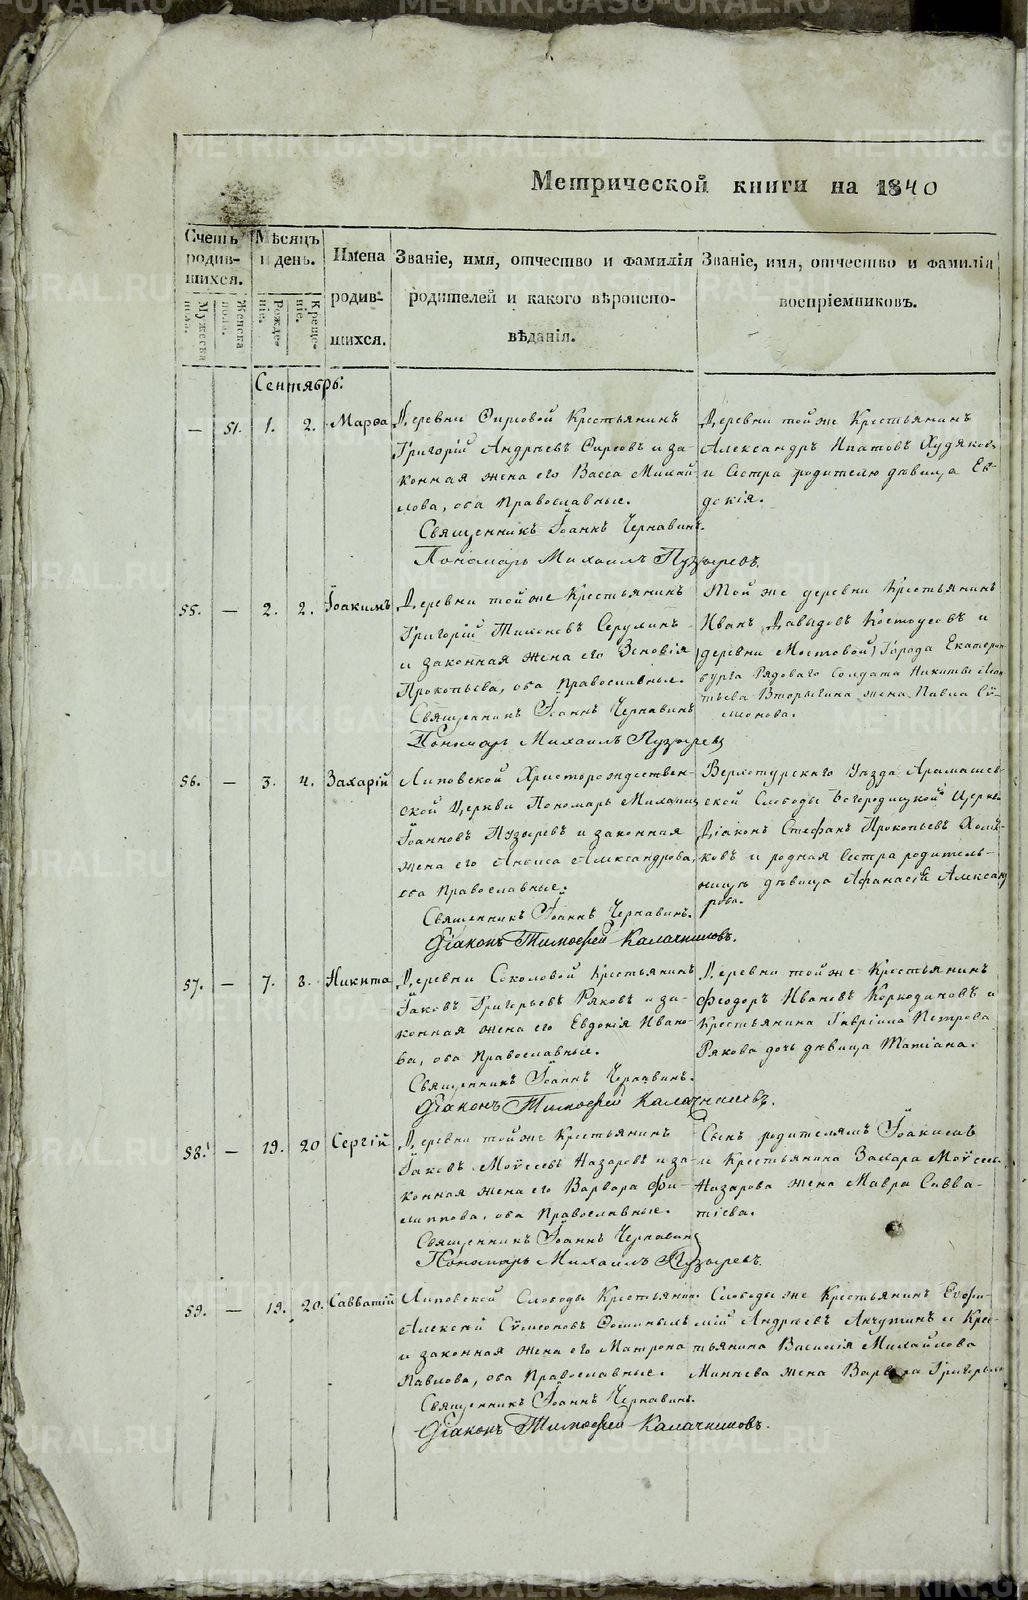 Метрической книги на 1840
Счетъ родив-шихся.
Мужеска пола.
Женска пола.
Мѣсяцъ и день.
Рожде-ніе.
Креще-ніе.
Имена родив-шихся.
Званіе, имя, отчество и фамилія родителей и какого вѣроиспо-вѣданія.
Званіе, имя, отчество и фамилія воспріемниковъ.
Сентябрь.
— 51. 1. 2. Марѳа
Деревни Фирсовой Крестьянинъ
Григорій Андрѣевъ Фирсовъ и за-
конная жена его Васса Михай-
лова, оба Православные.
Священникъ Іоаннъ Чернавинъ.
Пономарь Михаилъ Пузыревъ.
Деревни той же Крестьянинъ
Александръ Ипатовъ Худяковъ
и Сестра родителю дѣвица Ев-
докія.
55. — 2. 2. Іоакимъ
Деревни той же Крестьянинъ
Григорій Тихоновъ
и законная жена его Зиновія
Прокопьева, оба Православные.
Священникъ Іоаннъ Чернавинъ
Пономарь Михаилъ Пузыревъ
Той же деревни Крестьянинъ
Иванъ Давыдовъ Костоусовъ и
(деревни Мостовой) Города Екатерин-
бурга Рядоваго Солдата Никиты Леон-
тьева жена Павла Сѵ-
меонова.
56. — 3. 4. Захарій
Липовской Христорождествен-
ской Церкви Пономарь Михаилъ
Іоанновъ Пузыревъ и законная
жена его Анѳиса Александрова,
оба Православные.
Священникъ Іоаннъ Чернавинъ.
Діаконъ Тимоѳей Калачниковъ.
Верхотурскаго Уѣзда Арамашев-
ской Слободы Богородицкой Церкви
Діаконъ Стефанъ Прокопьевъ
и родная Сестра родитель-
ницѣ дѣвица Афанасія Александ
рова.
57. — 7. 8. Никита
Деревни Соколовой Крестьянинъ
Іаковъ Григорьевъ Ряковъ и за-
конная жена его Евдокія Ивано-
ва, оба Православные.
Священникъ Іоаннъ Чернавинъ.
Діаконъ Тимоѳей Калачниковъ.
Деревни той же Крестьянинъ
Феодоръ Ивановъ и
Крестьянина Гавріила Петрова
Рякова дочь дѣвица Татіана.
58. — 19. 20 Сергій
Деревни той же Крестьянинъ
Іаковъ Моѵсеевъ Назаровъ и за-
конная жена его Варвара Фи-
липпова, оба Православные.
Священникъ Іоаннъ Чернавинъ
Пономарь Михаилъ Пузыревъ.
Сынъ родителямъ Іоакимъ
и Крестьянина Захара Моѵсеева
Назарова жена Мавра Савва-
тіева.
59. — 19. 20. Савватій
Липовской Слободы Крестьянинъ
Алексѣй Сѵмеоновъ
и законная жена его Матрона
Павлова, оба Православные.
Священникъ Іоаннъ Чернавинъ.
Діаконъ Тимоѳей Калачниковъ.
Слободы же Крестьянинъ Евфи-
мій Андрѣевъ и Крес-
тьянина Василія Михайлова
Минѣева жена Варвара Григорьева